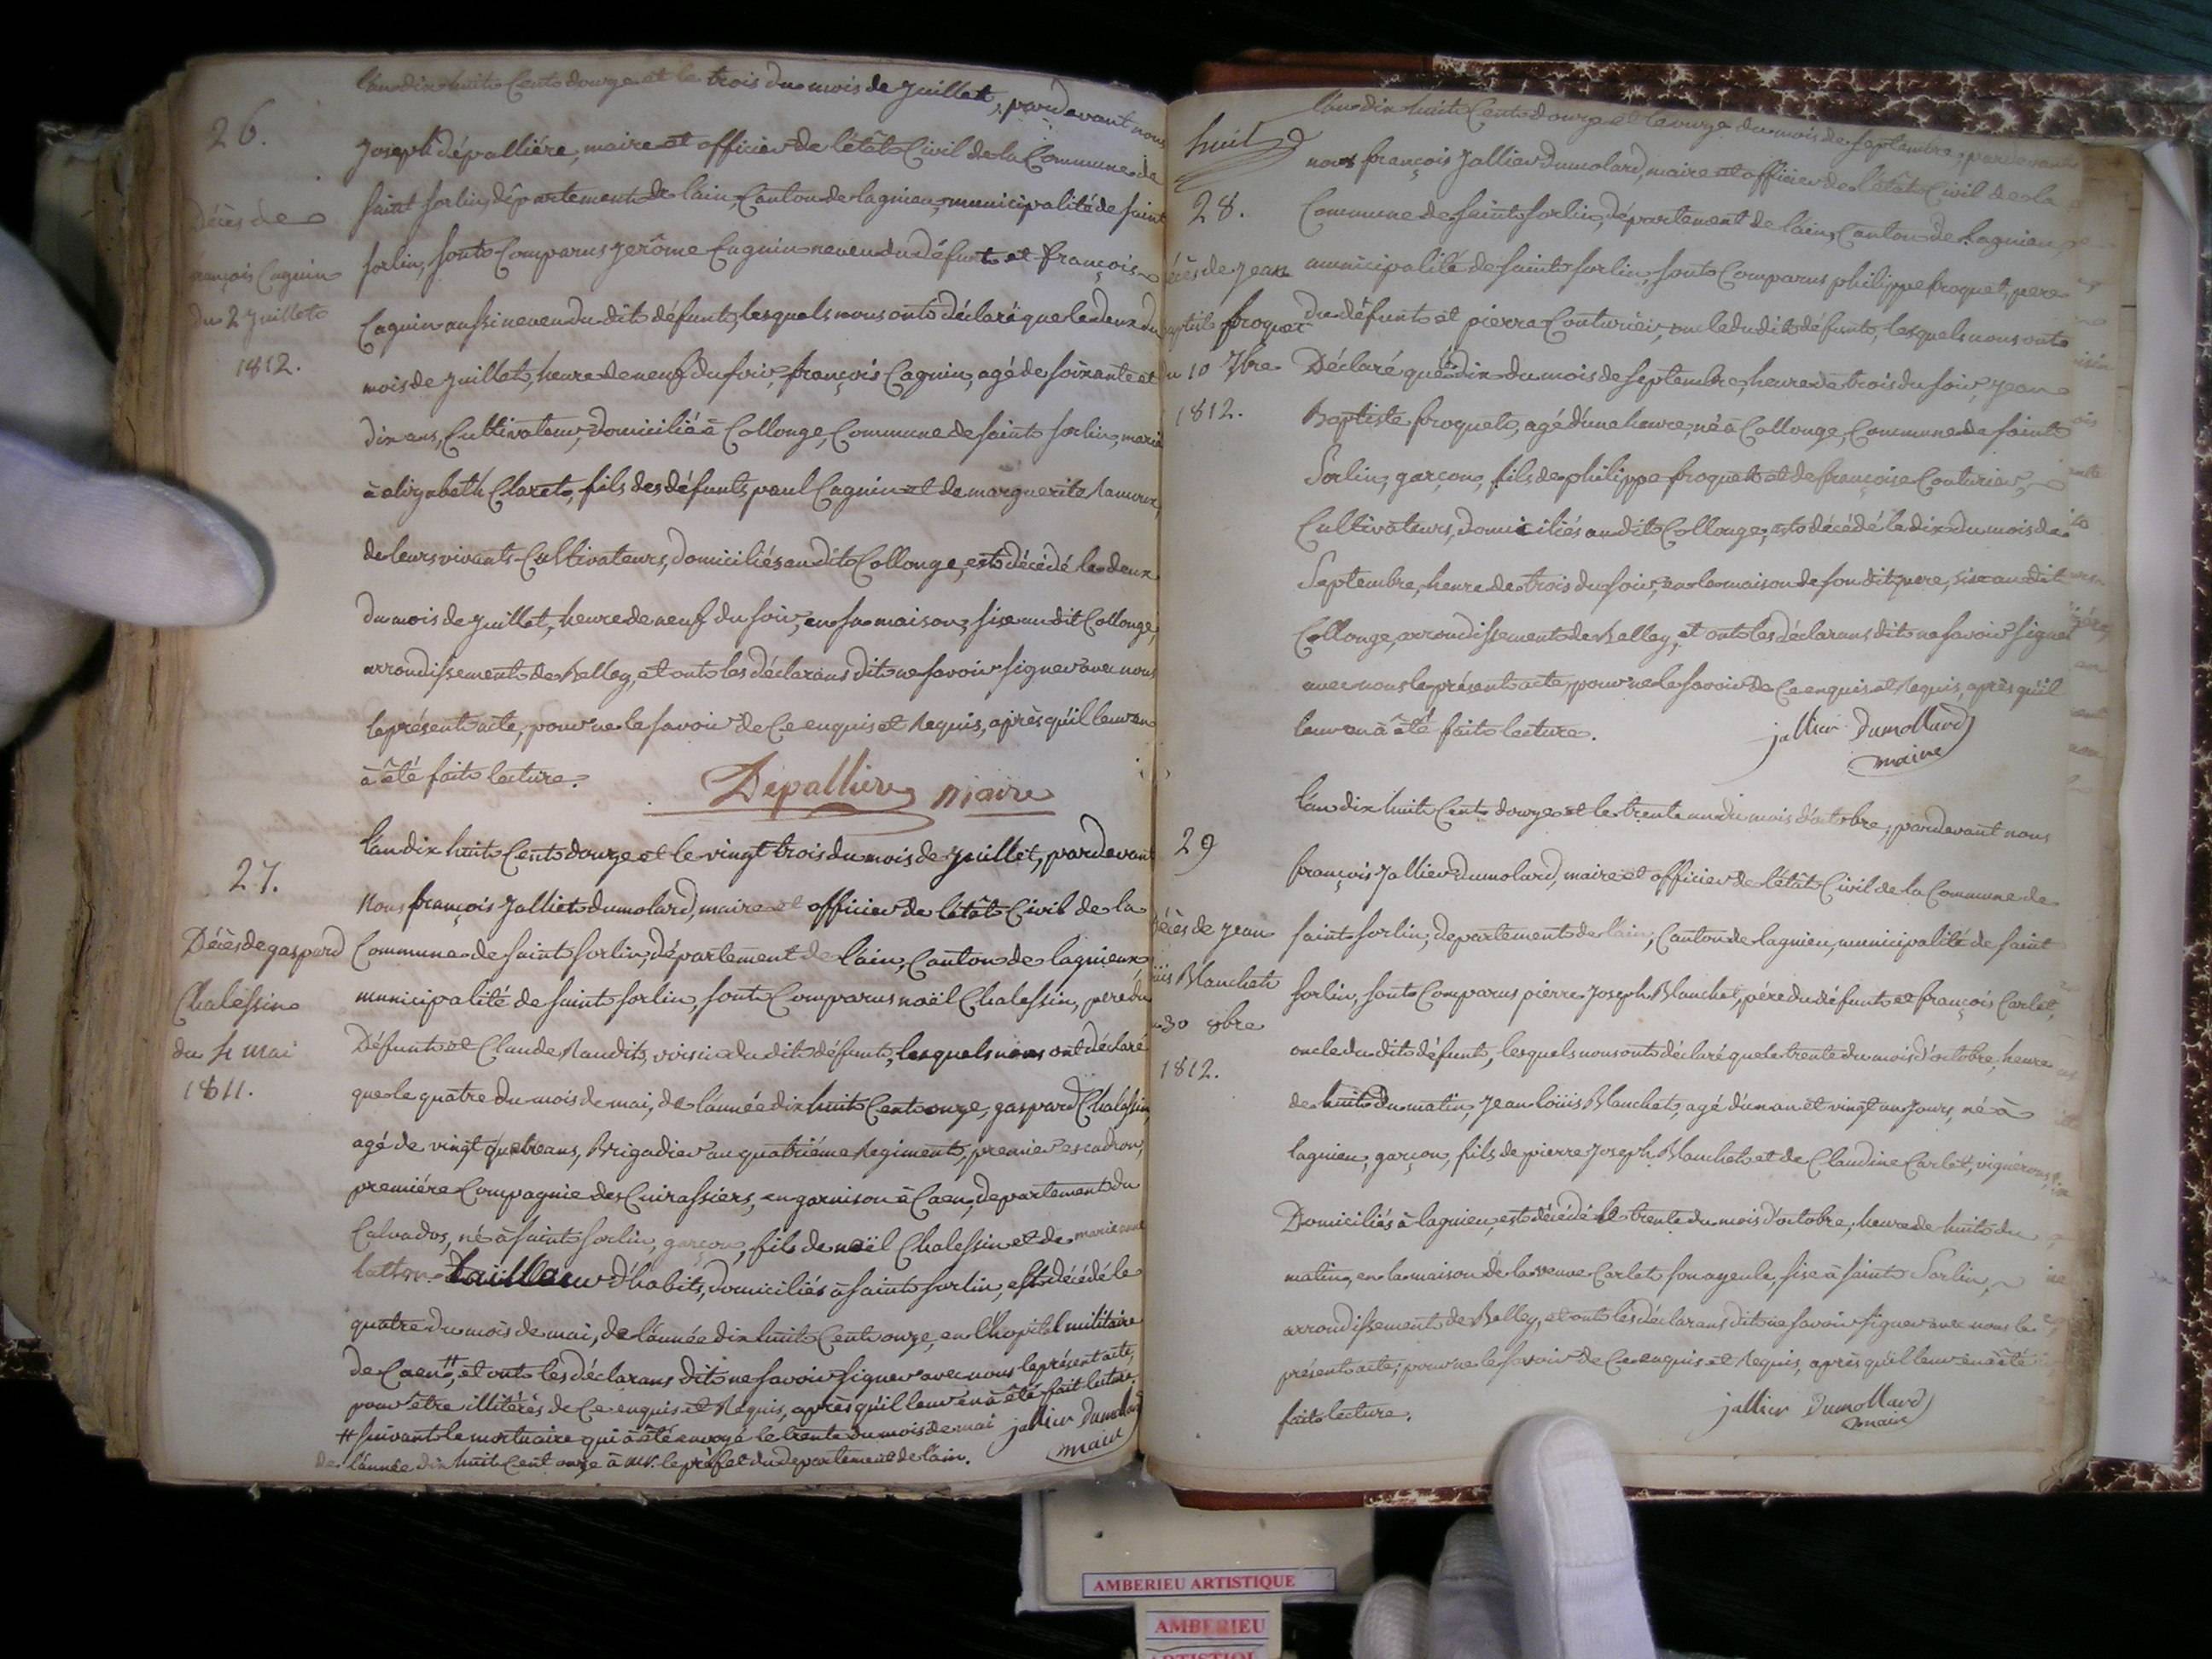 26.
Décès de
françois Caguin
du 2 Juillet
1812.
l'an dix huit Cent douze et le trois du mois de Juillet, pardevant nous
Joseph dépalliére, maire et officier de l'êtât Civil de la Commune de
saint sorlin, département de lain, Canton de lagnieu, municipalité de saint
sorlin, sont Comparus Jerôme Caguin neveu du défunt et françois
Caguin aussi neveu du dit défunt, lesquels nous ont déclaré que le deux du
mois de Juillet, heure de neuf du soir, françois Caguin, agé de soixante et
dix ans, Cultivateur, domicilié à Collonge, Commune de saint sorlin, marié
à elizabeth Claret, fils des défunts paul Caguin et de marguerite
de leurs vivants Cultivateurs, domiciliés au dit Collonge, est décédé le deux
du mois de Juillet, heure de neuf du soir, en sa maison, sise au dit Collonge,
arrondissement de Belley, et ont les déclarans dit ne savoir signer avec nous
le présent acte, pour ne le savoir de Ce enquis et Requis, après qu'il leur en
à êté fait lecture.
Dépalliere maire
27.
Décès de gaspard
Chalessin
du 4 mai
1811.
l'an dix huit Cent douze et le vingt trois du mois de Juillet, pardevant
Nous françois Jallier dumolard, maire et officier de l'êtât Civil de la
Commune de saint sorlin, département de lain, Canton de lagnieux,
municipalité de saint sorlin, sont Comparus noël Chalessin, pere du
Défunt et Claude Naudit, voisin du dit défunt, lesquels nous ont déclaré
que le quatre du mois de mai, de l'année dix huit Cent onze, gaspard Chalessin,
agé de vingt quatre ans, Brigadier au quatriéme Regiment, premier escadron,
premiére Compagnie des Cuirassiers, en garnison à Caen, departement du
Calvados, né à saint sorlin, garçon, fils de noël Chalessin et de marie anne
tailleur d'habits, domiciliés à saint sorlin, est décédé le
quatre du mois de mai, de l'année dix huit Cent onze, en l'hopital militaire
de Caen #, et ont les déclarans dit ne savoir signer avec nous le présent acte,
pour être illitérés de Ce enquis et Requis, après qu'il leur en à êté fait lecture.
# suivant le mortuaire qui à êté envoyé le trente du mois de mai
de l'année dix huit Cent onze à Mr. le préfet du departement de l'ain.
jallier Dumollard
maire
huit
28.
décès de Jean
Baptiste froquet
du 10 7bre
1812.
l'an dix huit Cent douze et le onze du mois de septembre, pardevant
nous françois Jallier dumolard, maire et officier de l'êtât Civil de la
Commune de saint sorlin, département de lain, Canton de lagnieu,
municipalité de saint sorlin, sont Comparus philippe froquet, pere
du défunt et pierre Couturier, oncle du dit défunt, lesquels nous ont
Déclaré que le dix du mois de septembre, heure de trois du soir, Jean
Baptiste froquet, agé d'une heure, né à Collonge, Commune de saint
Sorlin, garçon, fils de philippe froquet et de françoise Couturier,
Cultivateurs, domiciliés au dit Collonge, est décédé le dix du mois de
Septembre, heure de trois du soir, en la maison de son dit pere, sise au dit
Collonge, arrondissement de Belley, et ont les déclarans dit ne savoir signer
avec nous le présent acte, pour ne le savoir de Ce enquis et Requis, après qu'il
leur en à êté fait lecture.
jallier Dumollard
maire
29
décès de Jean
loüis Blanchet
du 30 8bre
1812.
l'an dix huit Cent douze et le trente un du mois d'octobre, pardevant nous
françois Jallier dumolard, maire et officier de l'êtât Civil de la Commune de
saint sorlin, departement de lain, Canton de lagnieu, municipalité de saint
sorlin, sont Comparus pierre Joseph Blanchet, pére du défunt et françois Carlet,
oncle du dit défunt, lesquels nous ont déclaré que le trente du mois d'octobre, heure
de huit du matin, Jean loüis Blanchet, agé d'un an et vingt un Jours, né à
lagnieu, garçon, fils de pierre Joseph Blanchet et de Claudine Carlet, vignérons,
Domiciliés à lagnieu, est décédé le trente du mois d'octobre, heure de huit du
matin, en la maison de la veuve Carlet son ayeule, sise à saint Sorlin,
arrondissement de Belley, et ont les déclarans dit ne savoir signer avec nous le
présent acte, pour ne le savoir de Ce enquis et Requis, après qu'il leur en à êté
fait lecture.
jallier Dumollard
maire
AMBERIEU ARTISTIQUE
AMBERIEU
ARTISTIQUE